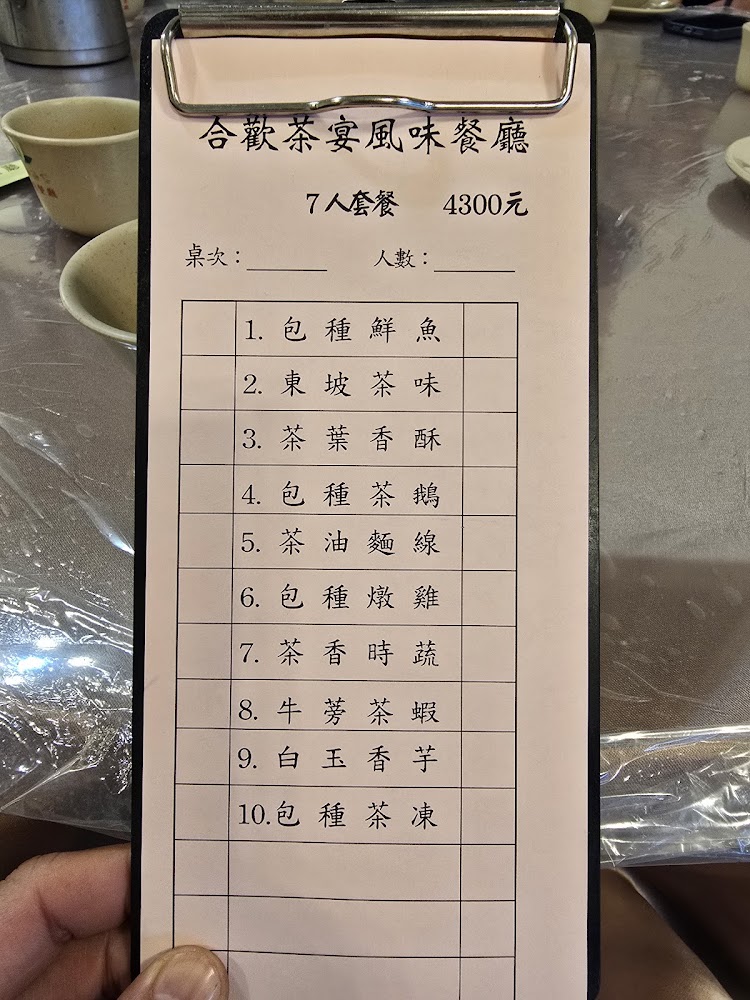 合歡茶宴風味餐廳
7人套餐 4300元
桌次：______ 人數：______
1. 包種鮮魚
2. 東坡茶味
3. 茶葉香酥
4. 包種茶鵝
5. 茶油麵線
6. 包種燉雞
7. 茶香時蔬
8. 牛蒡茶蝦
9. 白玉香芋
10.包種茶凍